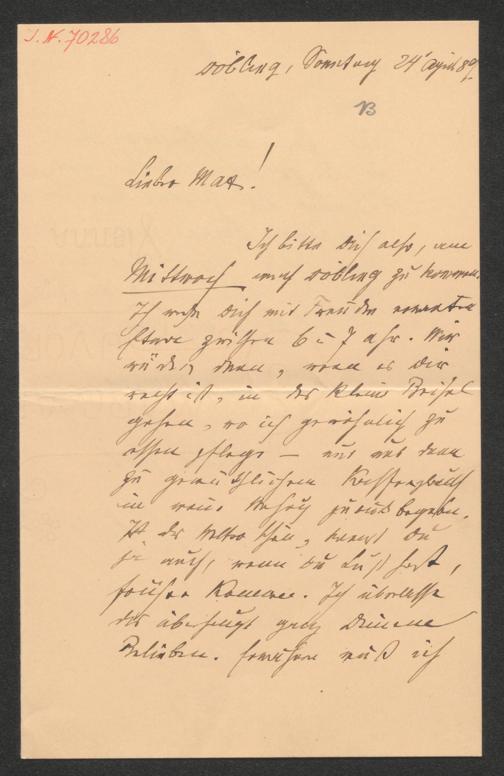 J. N. 70286
Döbling, Sonntag 24 April 89.
B
Lieber Max!
Ich bitte Dich also, am
Mittwoch nach Döbling zu kommen.
Ich werde Dich mit Freuden erwarten
etwa zwischen 6 u 7 Uhr. Wir
würden dann, wenn es Dir
recht ist, in das kleine Beisel
gehen, wo ich gewöhnlich zu
essen pflege – und uns dann
zu gemüthlichem
in meine Behausg zurückbegeben.
Ist das Wetter schön, kannst Du
ja auch, wenn Du Lust hast,
früher kommen. Ich überlasse
das überhaupt ganz Deinem
Belieben. muß ich